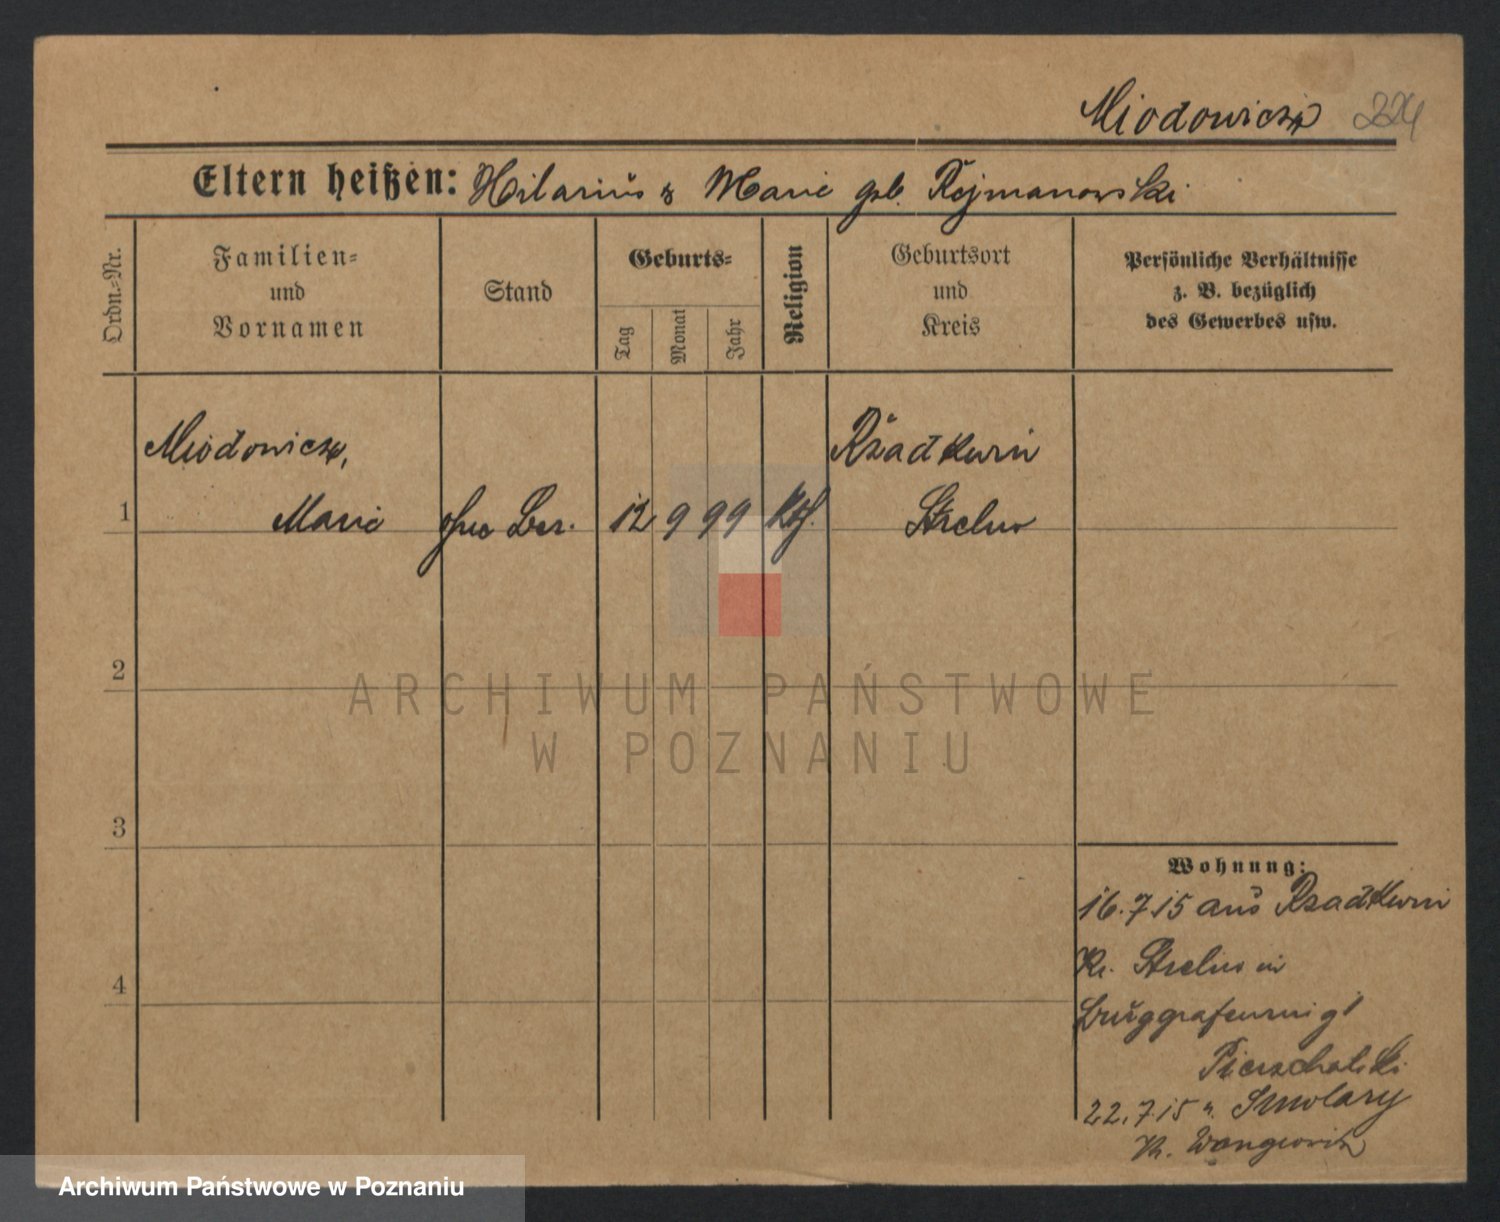 Miodowicz 224
Eltern heißen: Hilarius & Marie geb. Rejmanowski
Ordn.-Nr.
Familien-
und
Vornamen
Stand
Geburts-
Tag
Monat
Jahr
Religion
Geburtsort
und
Kreis
Persönliche Verhältnisse
z. B. bezüglich
des Gewerbes usw.
Miodowicz,
Rzadkwin
1 Marie ohne Ber. 12 9 99 Kth. Strelno
2
ARCHIWUM PAŃSTWOWE
W POZNANIU
3
Wohnung:
16.7 15 aus Rzadkwin
Kr. Strelno in
4
Pierzchalski
22.7.15 n. Smolary
Kr. Wongrowitz
Archiwum Państwowe w Poznaniu